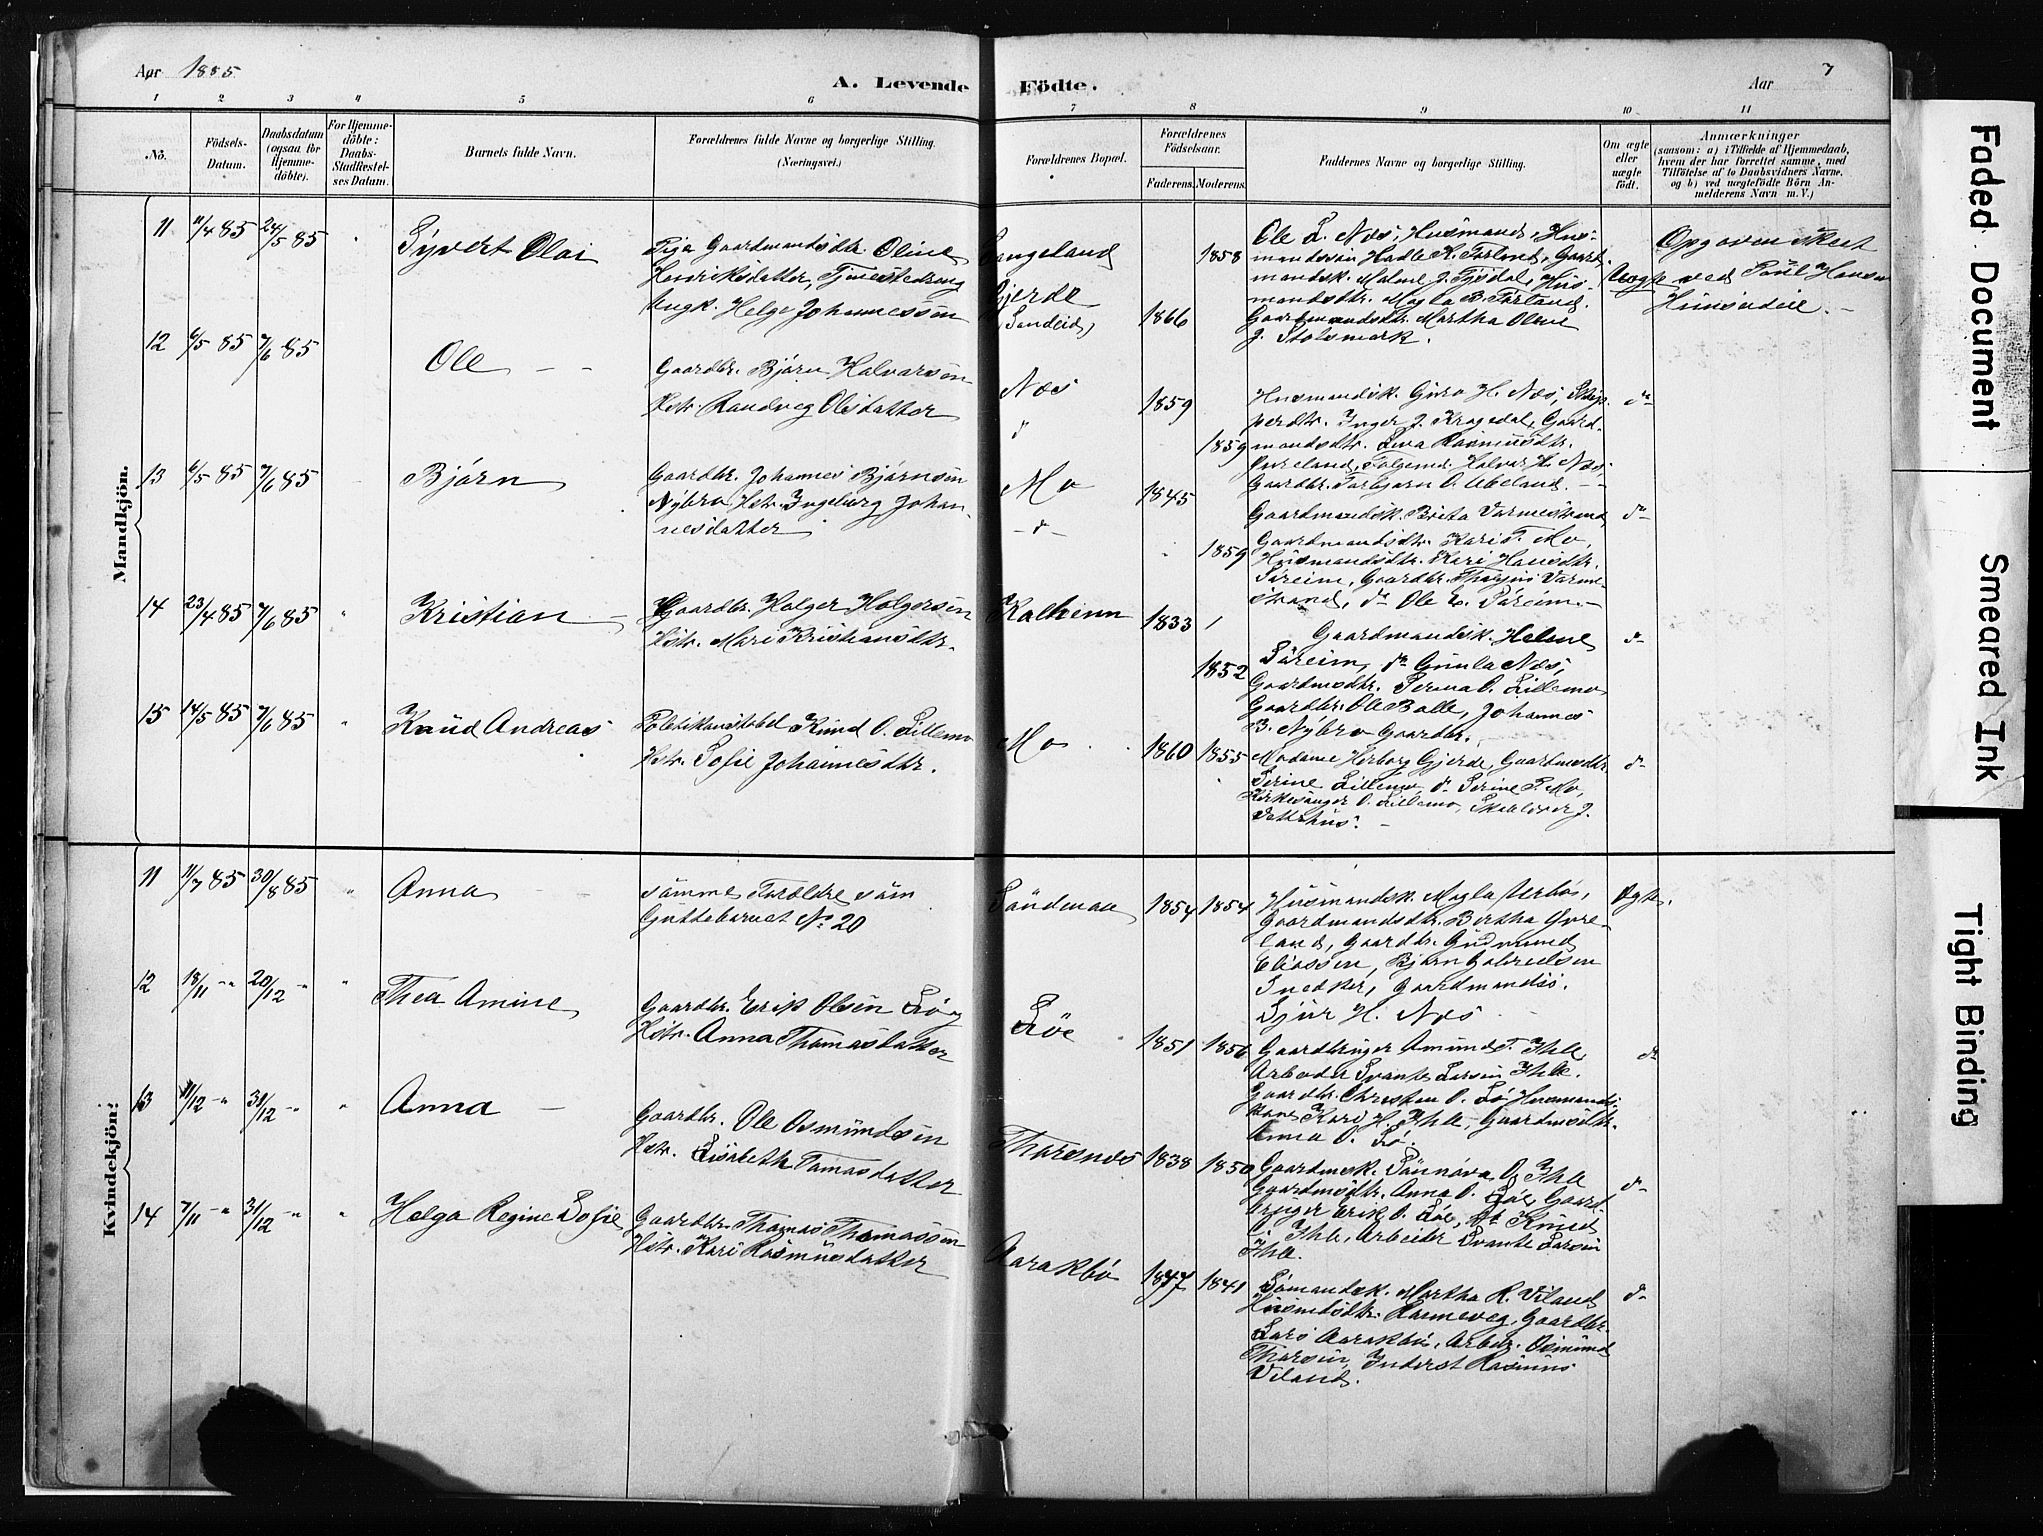 Aar 1885
A. Levende Födte.
Aar
7
1 2 3 4 5 6 7 8 9 10 11
No.
Födsels-
Datum.
Daabsdatum
(ogsaa for
Hjemme-
döbte).
For Hjemme-
döbte:
Daabs-
Stadfæstel-
ses Datum.
Barnets fulde Navn.
Forældrenes fulde Navne og borgerlige Stilling.
(Næringsvei.)
Forældrenes Bopæl.
Forældrenes
Födselsaar.
Faderens.
Moderens.
Faddernes Navne og borgerlige Stilling.
Om ægte
eller
uægte
födt.
Anmærkninger
(saasom: a) i Tilfælde af Hjemmedaab,
hvem der har forrettet samme, med
Tilföielse af to Daabsvidners Navne.
og b) ved uægtefödte Börn An-
melderens Navn m. V.)
Mandkjön.
11 11/4 85 24/5 85 Syvert Olai
Pige Gaardmandsdtr. Oline
Henriksdatter, Tjenestedreng
Ungk. Helge Johannessen
Tangeland
Gjerde
(Sandeid)
1866
1858
Ole L. Næs, Husmand, Hus-
mandssøn Hadle K. Førland, Gaard-
mandsk. Malene J. Tysdal, Hus-
mandsdtr. Magla B. Førland.
Gaardmandsdtr. Martha Olene
J. Stølsmark.
Uægte
Opgaven skeet
ved Poul Hansen
Husmand
12 6/5 85 7/6 85 Ole
Gaardbr. Bjørn Halvorsen
Hstr. Randveg Olsdatter
Næs
d
1859
1859
Husmandsk. Guro H. Næs, Skip-
perdtr. Inger J. Kragedal, Gaard-
mandsdtr. Lena Rasmusdtr.
Halvor H. Næs
Gaardbr. Torbjørn O. Ubeland.
do
13 6/5 85 7/6 85 Bjørn
Gaardbr. Johannes Bjørnsen
Nybru, Hstr. Ingeborg Johan-
nesdatter
Mo
d
1845
1859
Gaardmandsk. Brita Varmestrand
Gaardmandsdtr. Kari T. Mo,
Husmandsdtr. Kari Hansdtr.
Søreim, Gaardbr. Thorsen Varme-
strand, do Ole E. Søreim.
do
14 23/4 85 7/6 85 Kristian
Gaardbr. Holger Holgersen
Hstr. Mari Kristiansdtr.
Kalheim
1833
1852
Gaardmandsk. Helene
Søreim, do Gunla Næs,
Gaardmsdtr. Serina O. Lillemo
Gaardbr. Ole Balle, Johannes
B. Nybru Gaardbr.
do
15 14/5 85 7/6 85 Knud Andreas
Politikonstabel Knud O. Lillemo
Hstr. Sofie Johannesdtr.
Mo
1860 1855
Madame Herborg Gjerde, Gaardmsdtr.
Serine Lillemo, do Serine P. Mo,
Kirkesanger O. Lillemo, Skolelærer J.
Vatthus.
do
Kvindekjön.
11 11/7 85 30/8 85 Anna
samme Forældre som
Guttebarnet No 20
Søndenaa
1854 1854
Husmandsk. Magla Aarbø,
Gaardmandsdtr. Bertha Øvre-
land, Gaardbr. Gudmund
Eliassen, Bjørn Gabrielsen
Snedker, Gaardmandss.
Sjur H. Næs
Ægte.
12 18/11 " 20/12 " Thea Amine
Gaardbr. Erik Olsen Løe
Hstr. Anna Thomasdatter
Løe
1851 1856
Gaardbruger Amund T. Ihle
Arbeider Svante Larsen Ihle.
Gaardbr. Christen O. Lø, Husmands-
kone Kari H. Ihle, Gaardmsdtr.
Anna O. Lø.
do
13 11/12 " 31/12 " Anna
Gaardbr. Ole Osmundsen
Hstr. Lisabeth Tomasdatter
Thorsnes
1838 1850
Gaardmsk. Sønnøva O. Ihle
Gaardmsdtr. Anna O. Løe, Gaard-
bruger Erik O. Løe, do Knud
O. Ihle, Arbeider Svante Larsen
Ihle.
do
14 7/11 " 31/12 " Helga Regine Sofie
Gaardbr. Thomas Thomassen
Hstr. Kari Rasmusdatter
Aarakbø
1847 1841
Sømandsk. Martha R. Viland
Husmsdtr. Ranneveg, Gaardbr.
Lars Aarakbø, Arbeid. Osmund
Thorsen, Inderst Rasmus
Viland.
do
Faded Document
Smeared Ink
Tight Binding